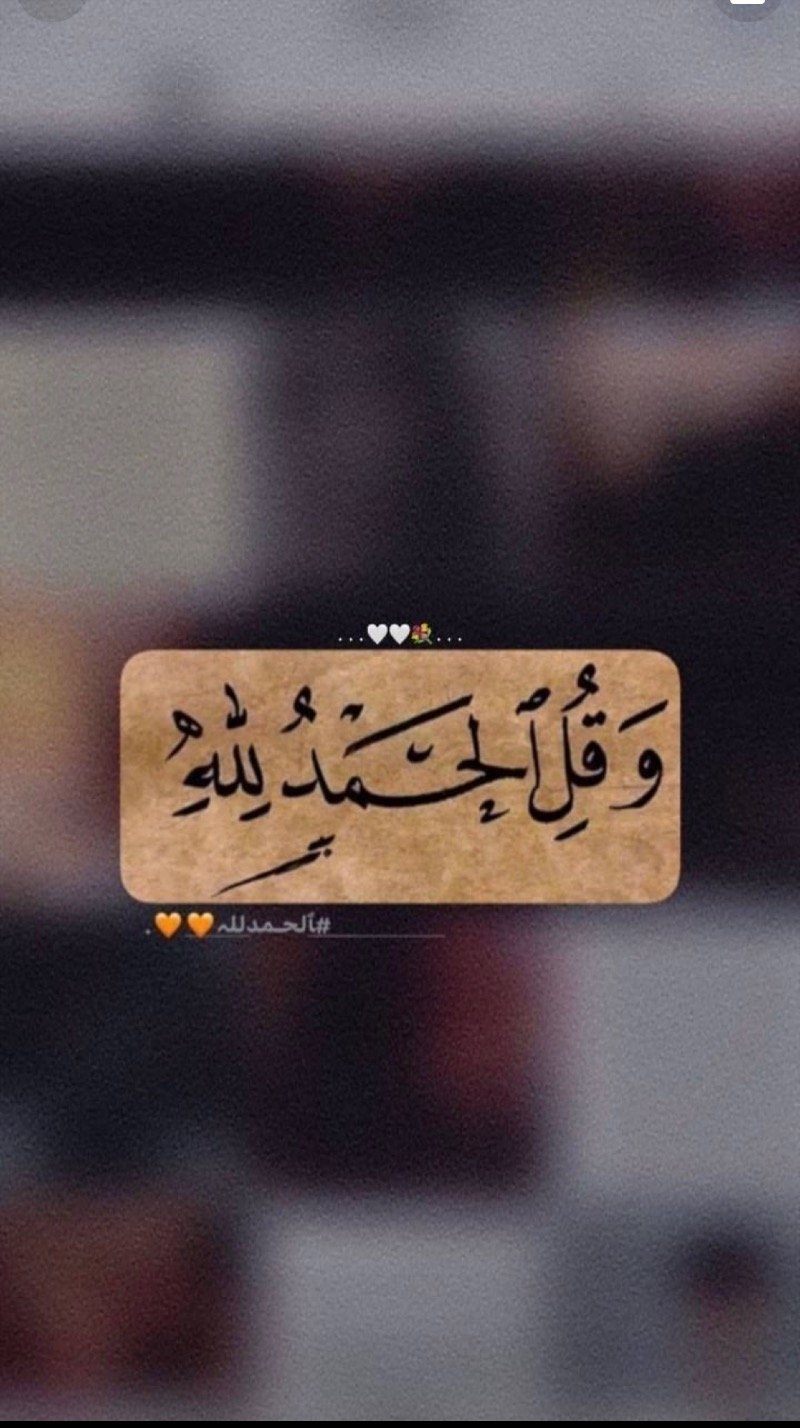 ...🤍🤍💐...
وَقُلِ ٱلْحَمْدُ لِلَّهِ
#ٱلحـمدللہ🧡🧡.